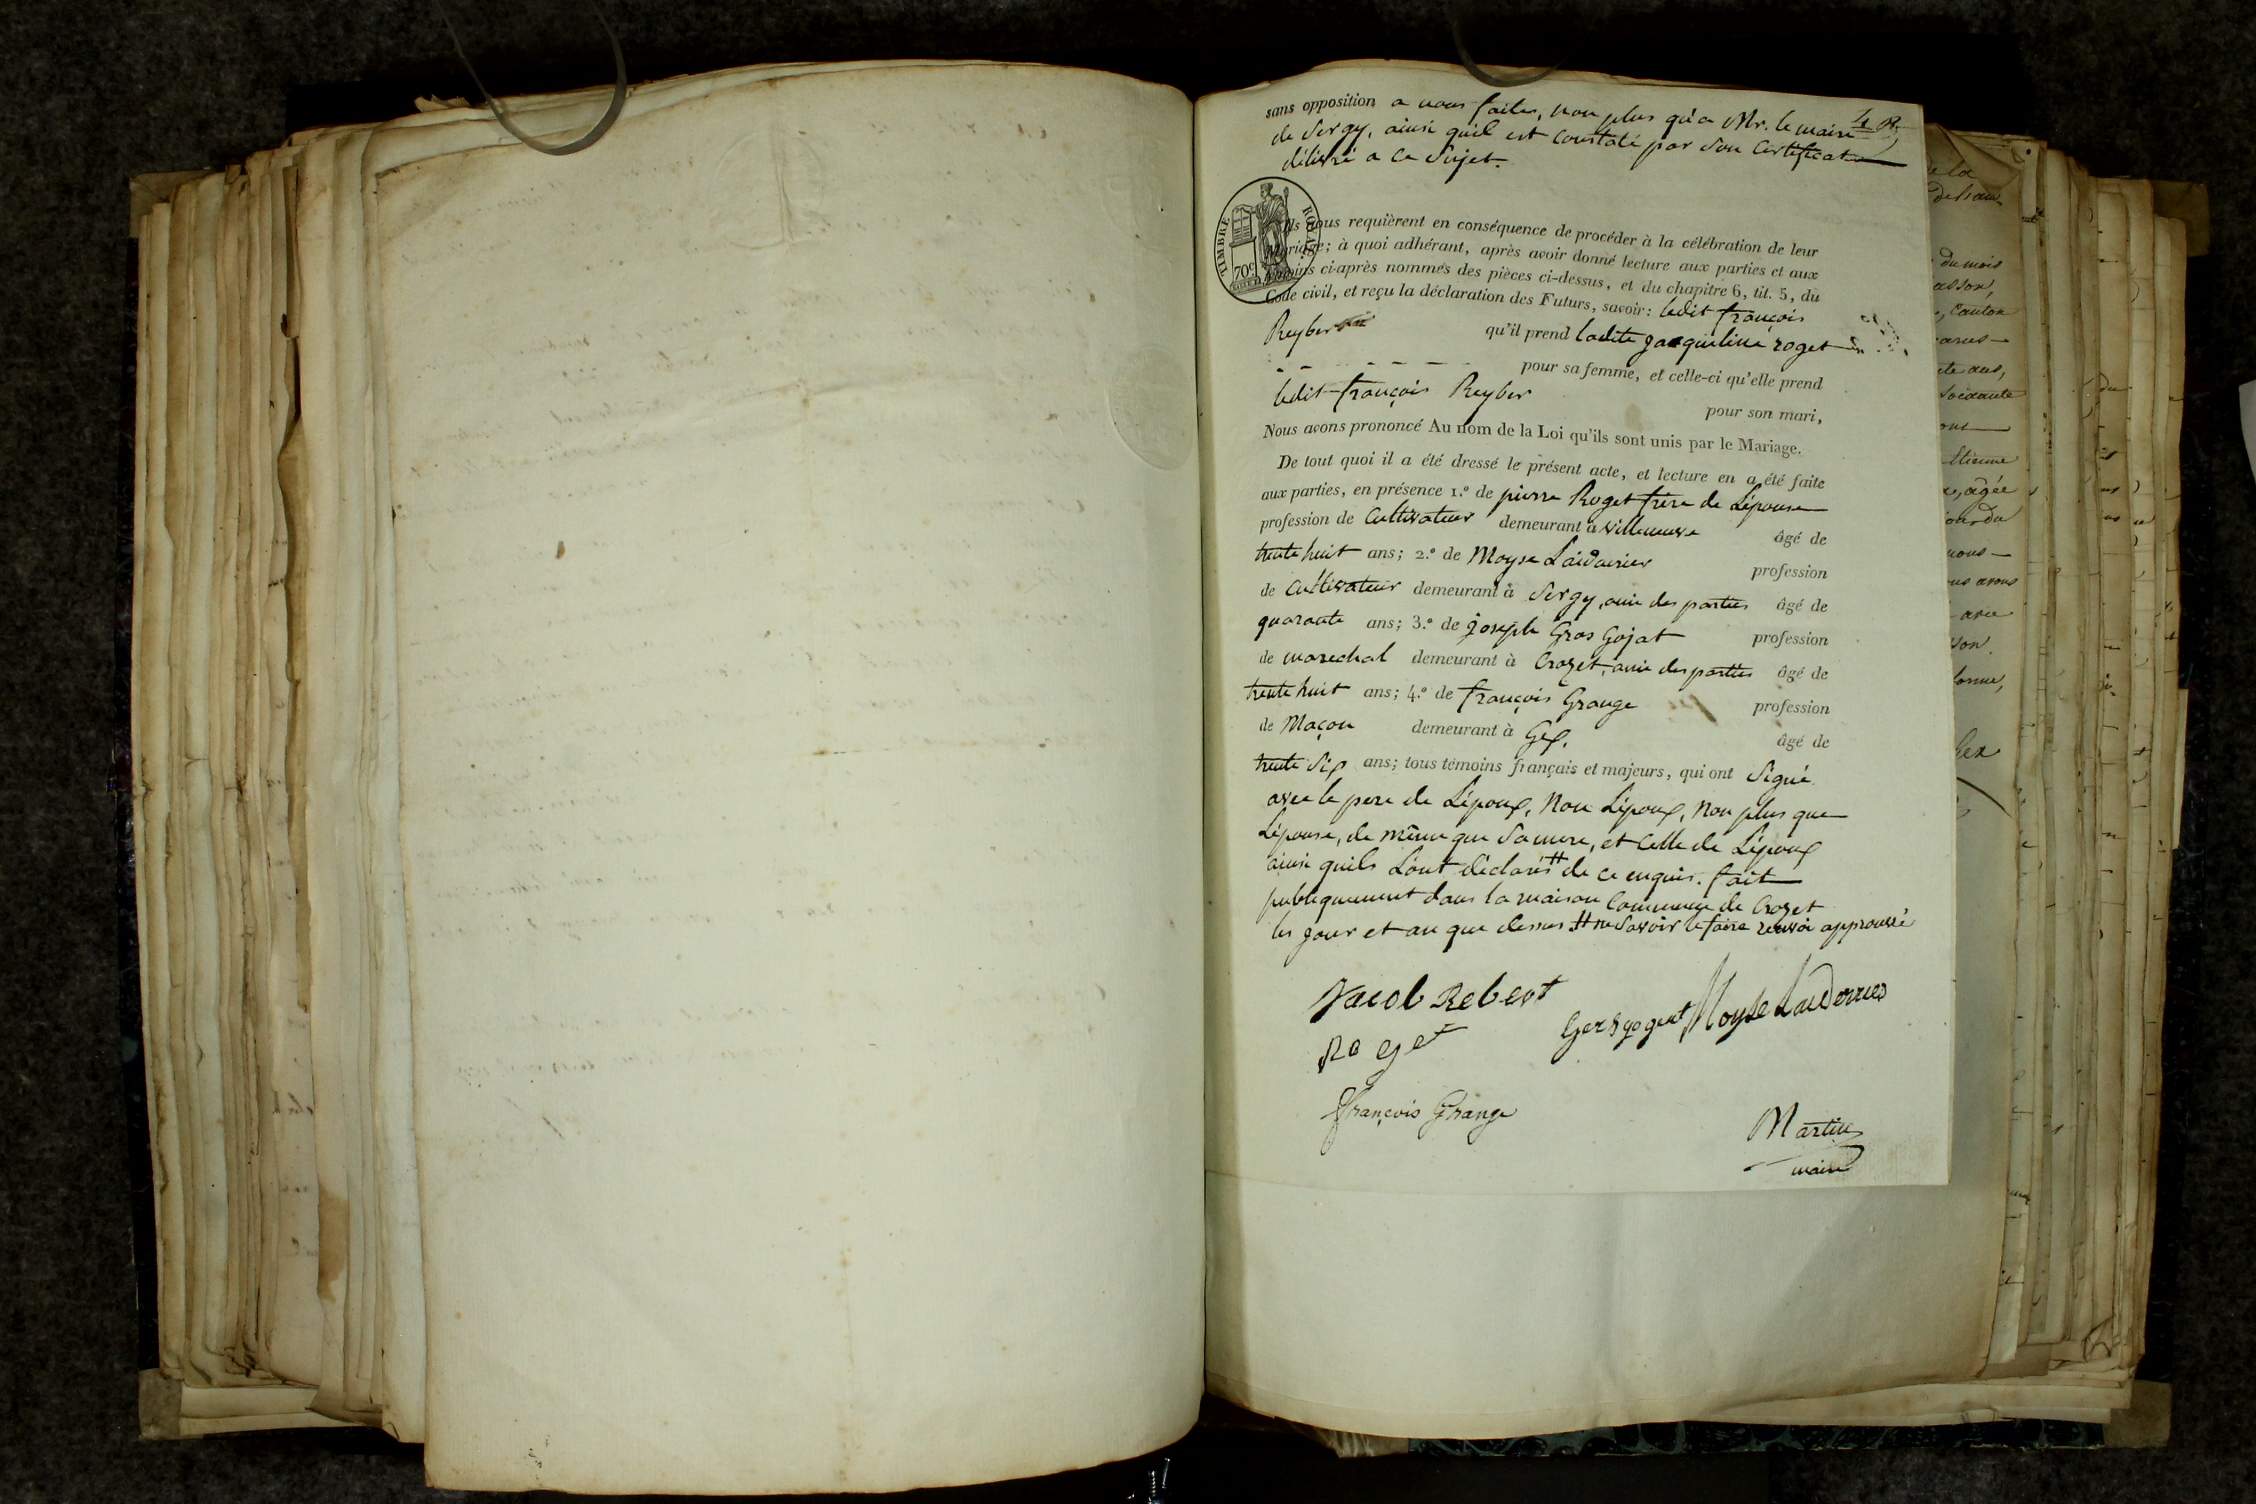 sans opposition a nous faites, non plus qu'a Mr. le maire
de Sergy, ainsi quil est constaté par son certificat
délivré a ce sujet.
TIMBRE ROYAL
70c
Ils nous requièrent en conséquence de procéder à la célébration de leur
Mariage; à quoi adhérant, après avoir donné lecture aux parties et aux
témoins ci-après nommés des pièces ci-dessus, et du chapitre 6, tit. 5, du
Code civil, et reçu la déclaration des Futurs, savoir: ledit françois
Reyber qu'il prend ladite jacqueline roget
pour sa femme, et celle-ci qu'elle prend
ledit françois Reyber pour son mari,
Nous avons prononcé Au nom de la Loi qu'ils sont unis par le Mariage.
De tout quoi il a été dressé le présent acte, et lecture en a été faite
aux parties, en présence 1.º de pierre Roget frère de Lépouse
profession de Cultivateur demeurant à villeneuve âgé de
trente huit ans; 2.º de Moyse Laidvernier profession
de Cultivateur demeurant à Sergy, ami des parties âgé de
quarante ans; 3.º de joseph Gros Gojat profession
de marechal demeurant à Crozet, ami des parties âgé de
trente huit ans; 4.º de françois Grange profession
de Maçon demeurant à Gex. âgé de
trente Six ans; tous témoins français et majeurs, qui ont Signé
avec le pere de Lépoux, Non Lépoux, Non plus que
Lépouse, de même que Sa mere, et Celle de Lépoux
ainsi quils Lont déclarés # de ce enquis. fait
publiquement dans la maison Commune de Crozet
les jour et an que dessus # ne Savoir le faire renvoi approuvé
Jacob Rebert
Roget
Moyse
françois Grange
Martin
maire
de la
du mois
Canton
ans,
Soixante
Etienne
agée
jour du
nous
avons
avec
Gex